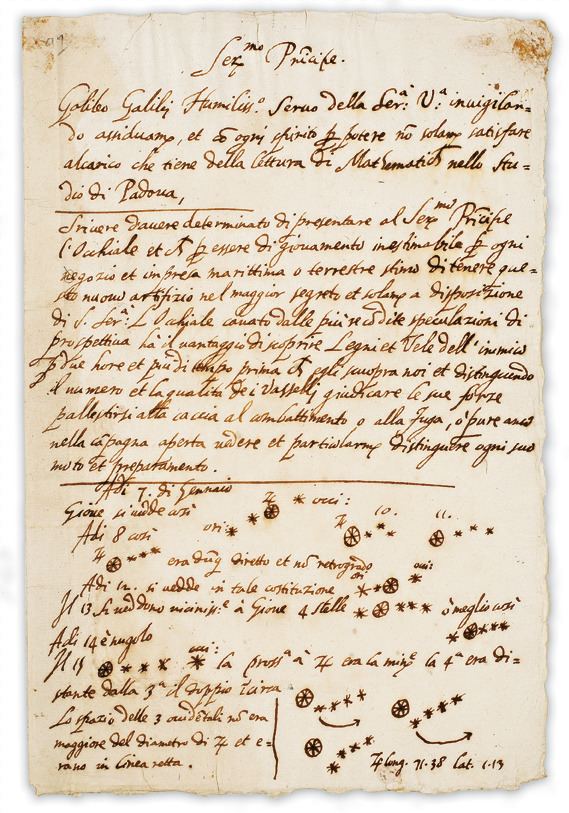 Ser.mo Prĩcipe.
Galileo Galilej Humiliss.o Seruo della Ser.a V.a inuigilan-
do assiduam.e, et cõ ogni spirito ꝑ potere nõ solam.e satisfare
alcarico che tiene della lettura di Mathematich nello Stu-
dio di Padoua,
Scriuere dauere determinato di presentare al Ser.mo Prĩcipe
l'Occhiale et ꝑ essere di giouamento inestimabile ꝑ ogni
negozio et impresa marittima o terrestre stimo di tenere que-
sto nuouo artifizio nel maggior segreto et solam.e a disposizione
di S. Ser.a L'Occhiale cauato dalle più recõdite speculazioni di
prospettiua há il uantaggio di scoprire Legni et Vele dell' inimico
ꝑ due hore et più di tempo prima egli scuopra noi et distinguendo
il numero et la qualità de i Vasselli giudicare le sue forze
pallestirsi alla caccia al combattimento o alla fuga, ò pure anco
nella cãpagna aperta uedere et particolarm.e distinguere ogni suo
moto et preparamento.
Adi 7. di Gennaio
Gioue si uedde così ♃ occi:
Adi 8 così ori: ♃ 10. 11.
♃ era dũq diretto et nõ retrogrado
Adi 12. si uedde in tale costituzione ori occi:
Il 13 si ueddono uiciniss.e à Gioue 4 stelle ò meglio così
Adi 14 è nugolo
Il 15 occi: la pross.a à ♃ era la min.e la 4.a era di-
stante dalla 3.a il doppio circa
Lo spazio delle 3 occidẽtali nõ era
maggiore del diametro di ♃ et e-
rano in linea retta.
♃ long. 71.38 lat. 1.13